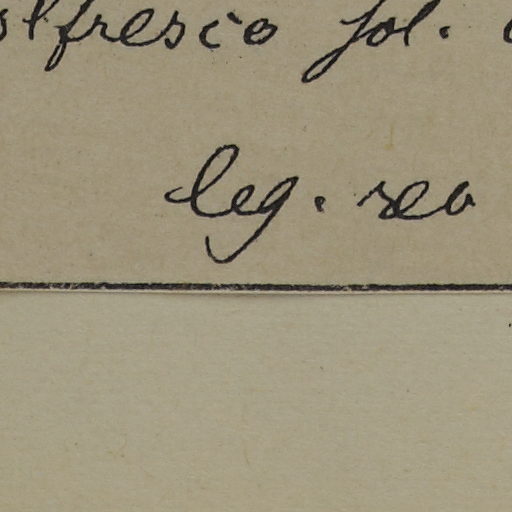 alfresco fol.
leg. rev